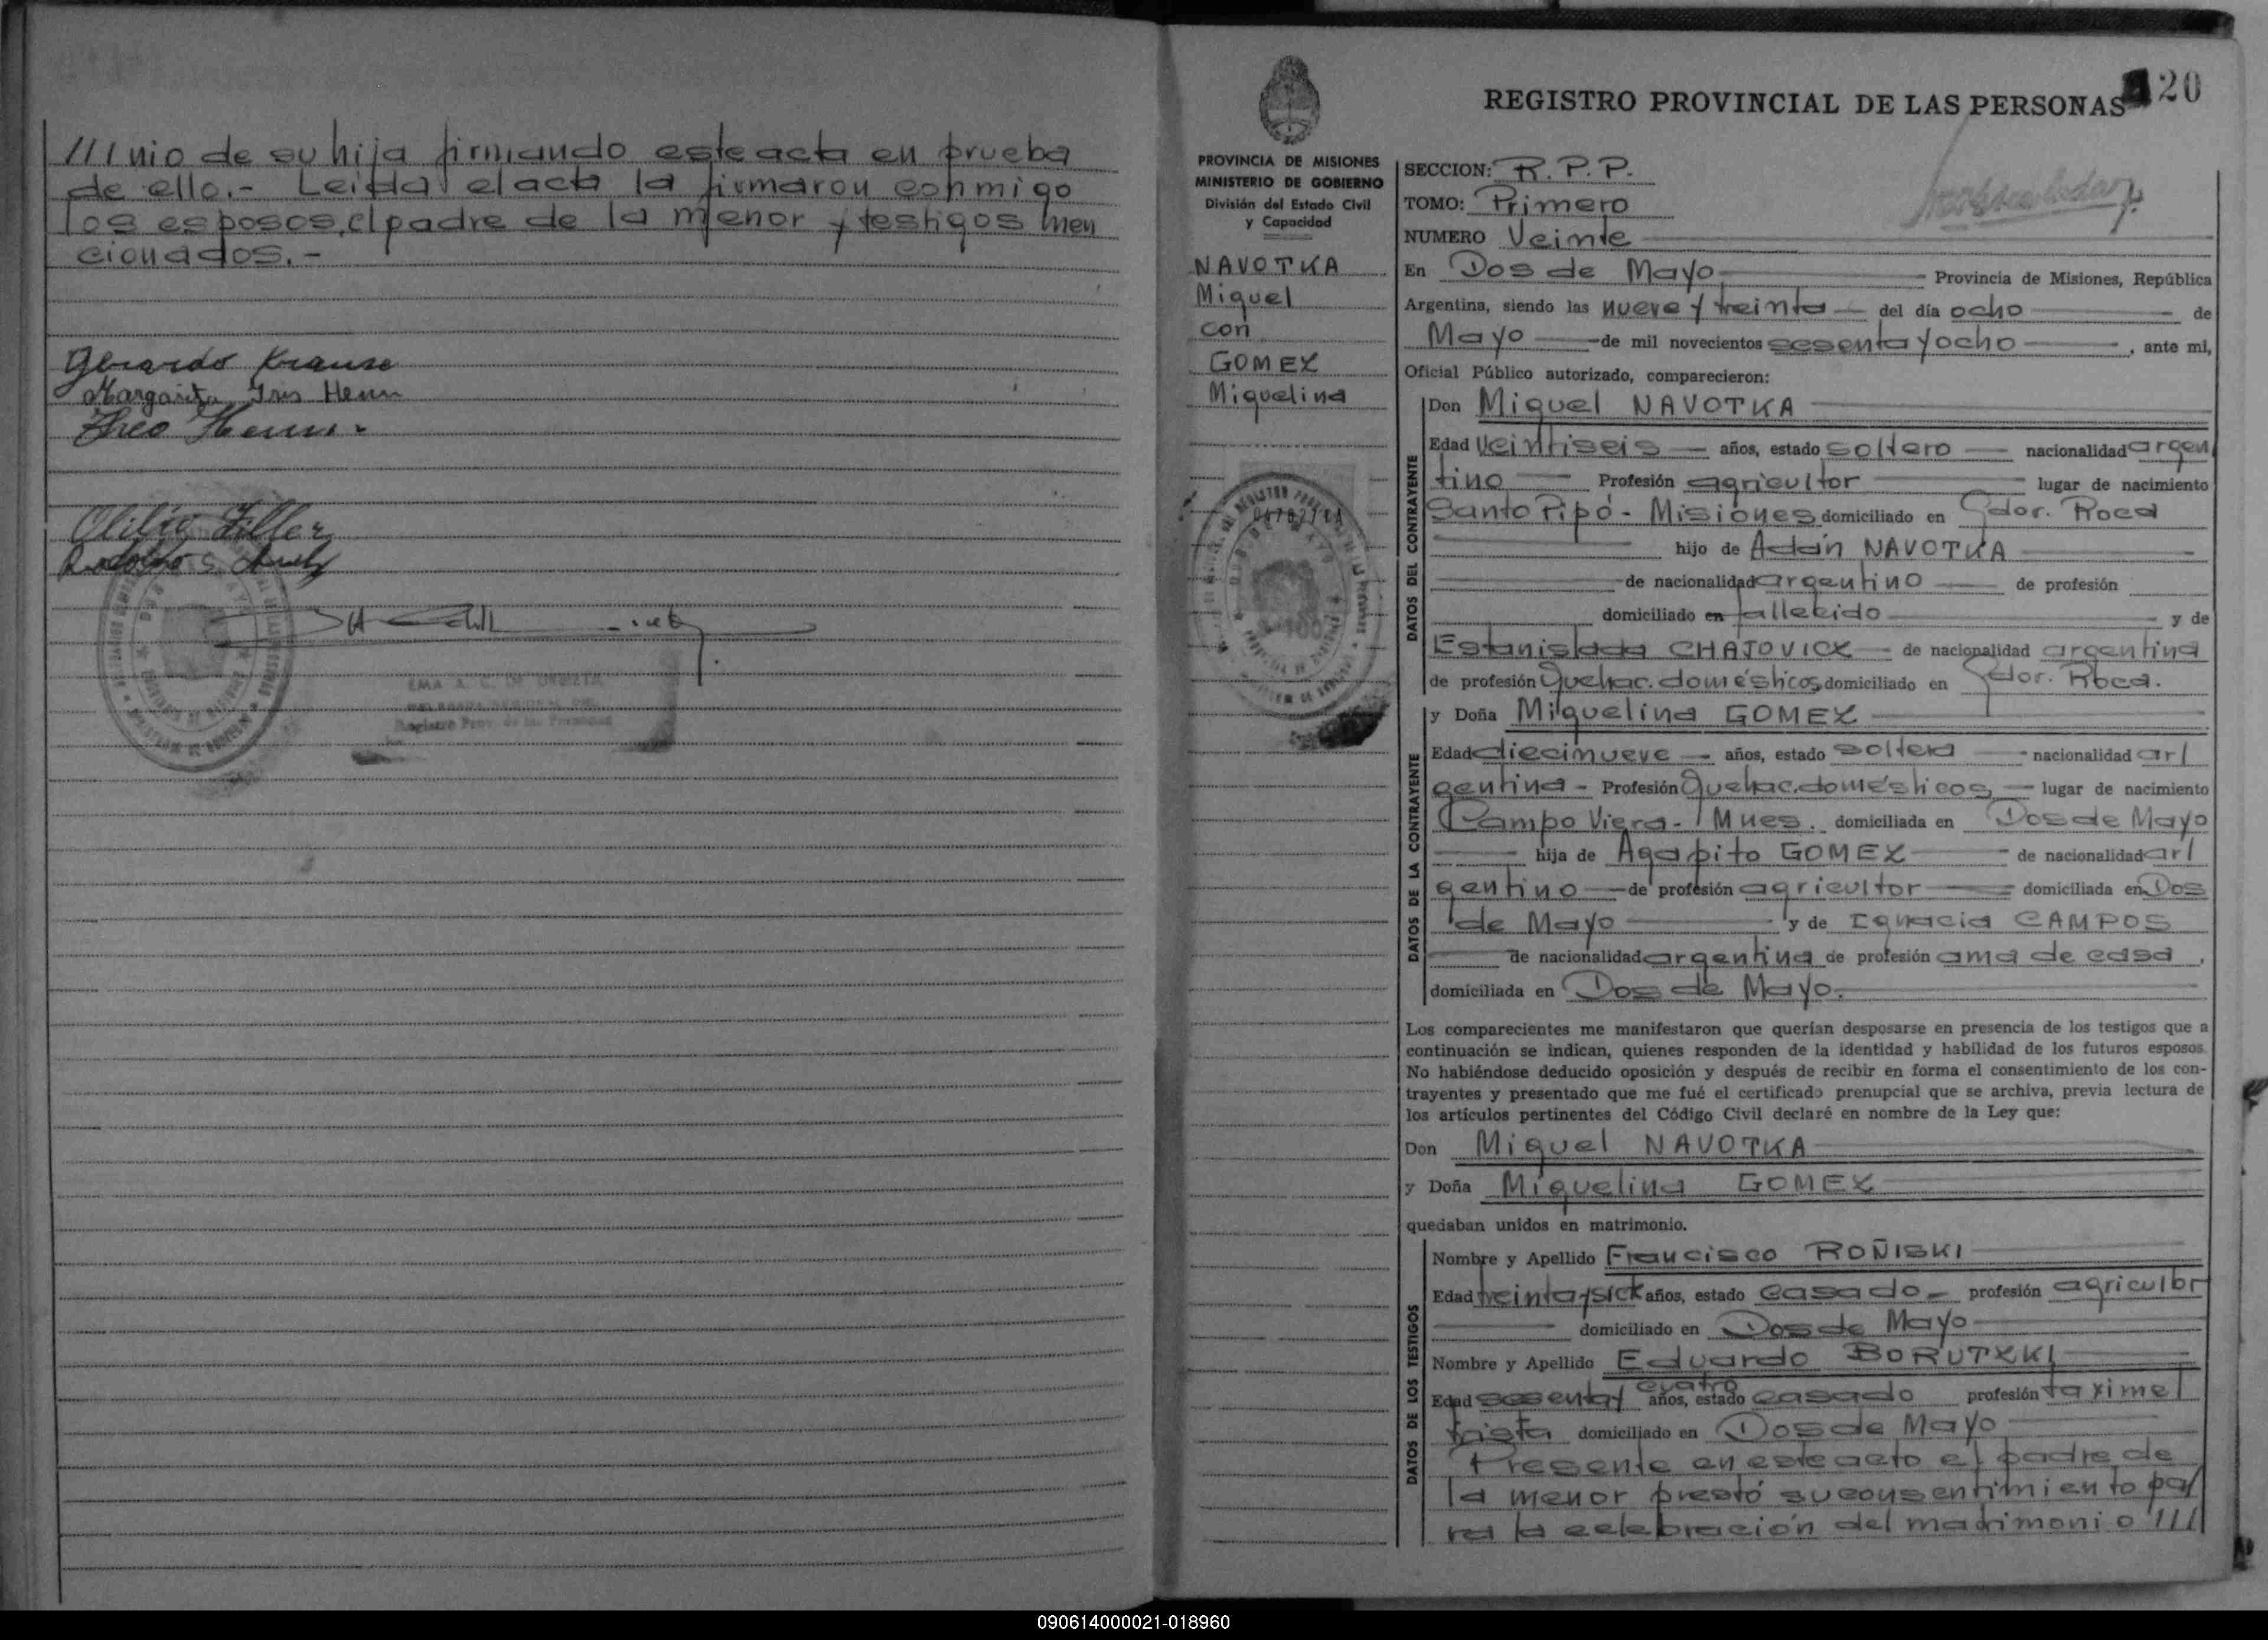 ///nio de su hija firmando este acta en prueba
de ello.- Leida el acta la firmaron conmigo
los esposos, el padre de la menor y testigos men
cionados.-
Gerardo Krause
Margarita Iris Henn
Theo Henn
REGISTRO PROVINCIAL DE LAS PERSONAS
20
PROVINCIA DE MISIONES
MINISTERIO DE GOBIERNO
División del Estado Civil
y Capacidad
NAVOTKA
Miguel
con
GOMEZ
Miguelina
SECCION: R.P.P.
TOMO: Primero
NUMERO Veinte
En Dos de Mayo Provincia de Misiones, República
Argentina, siendo las nueve y treinta del día ocho de
Mayo de mil novecientos sesenta y ocho, ante mi,
Oficial Público autorizado, comparecieron:
DATOS DEL CONTRAYENTE
Don Miguel NAVOTKA
Edad veintiseis años, estado soltero nacionalidad argen
tino Profesión agricultor lugar de nacimiento
Santo Pipó - Misiones domiciliado en Gdor. Roca
hijo de Adán NAVOTKA
de nacionalidad argentino de profesión
domiciliado en fallecido y de
Estanislada CHAJOVICZ de nacionalidad argentina
de profesión Quehac. domésticos, domiciliado en Gdor. Roca.
DATOS DE LA CONTRAYENTE
y Doña Miguelina GOMEZ
Edad diecinueve años, estado soltera nacionalidad ar/
gentina - Profesión Quehac. domésticos, lugar de nacimiento
Campo Viera - Mnes. domiciliada en Dos de Mayo
hija de Agapito GOMEZ de nacionalidad ar/
gentino de profesión agricultor domiciliada en Dos
de Mayo y de Ignacia CAMPOS
de nacionalidad argentina de profesión ama de casa,
domiciliada en Dos de Mayo.
Los comparecientes me manifestaron que querían desposarse en presencia de los testigos que a
continuación se indican, quienes responden de la identidad y habilidad de los futuros esposos.
No habiéndose deducido oposición y después de recibir en forma el consentimiento de los con-
trayentes y presentado que me fué el certificado prenupcial que se archiva, previa lectura de
los artículos pertinentes del Código Civil declaré en nombre de la Ley que:
Don Miguel NAVOTKA
y Doña Miguelina GOMEZ
quedaban unidos en matrimonio.
DATOS DE LOS TESTIGOS
Nombre y Apellido Francisco ROÑISKI
Edad treinta y siete años, estado casado - profesión agricultor
domiciliado en Dos de Mayo
Nombre y Apellido Eduardo BORUTZKI
Edad sesenta y cuatro años, estado casado profesión taxime/
trista domiciliado en Dos de Mayo
Presente en este acto el padre de
la menor prestó su consentimiento pa/
ra la celebración del matrimonio ///
090614000021-018960